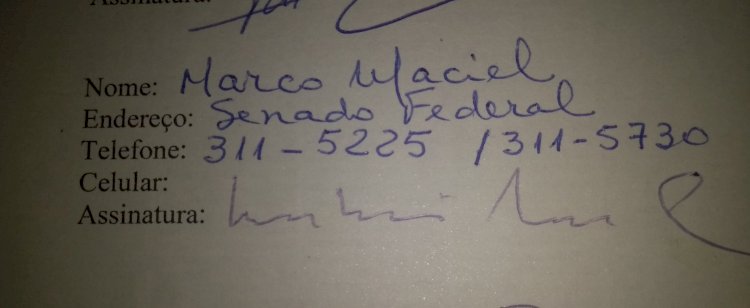 Assinatura:
Nome: Marco Maciel
Endereço: Senado Federal
Telefone: 311-5225 / 311-5730
Celular:
Assinatura: